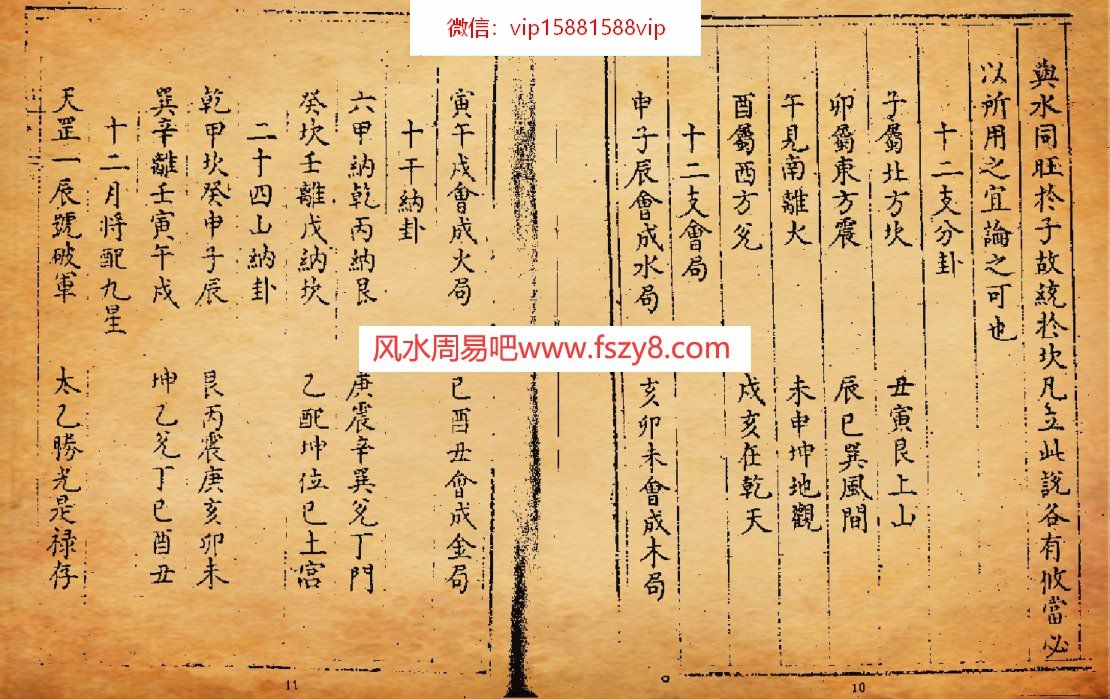 微信：vip15881588vip
與水同旺於子故統於坎凡立此說各有攸當必
以所用之宜論之可也
十二支分卦
子屬北方坎 丑寅艮上山
卯屬東方震 辰巳巽風間
午見南離火 未申坤地觀
酉屬西方兌 戌亥在乾天
十二支會局
申子辰會成水局 亥卯未會成木局
10
寅午戌會成火局 巳酉丑會成金局
十干納卦
六甲納乾丙納艮 庚震辛巽兌丁門
癸坎壬離戊納坎 乙配坤位已土宮
二十四山納卦
乾甲坎癸申子辰 艮丙震庚亥卯未
巽辛離壬寅午戌 坤乙兌丁巳酉丑
十二月將配九星
天罡一辰號破軍 太乙勝光是祿存
11
风水周易吧www.fszy8.com